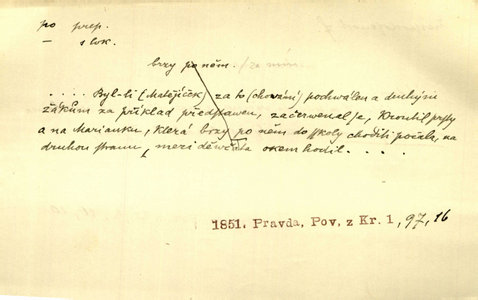 po prep.
— s lok.
brzy po něm. /za ním.
.... Byl-li (Matějíček) za to (chování) pochválen a druhým
žákům za příklad představen, začervenal se, kroutil prsty
a na Marianku, která brzy po něm do školy choditi počala, na
druhou stranu, mezi děvčata okem hodil....
1851. Pravda, Pov. z Kr. 1, 97, 16